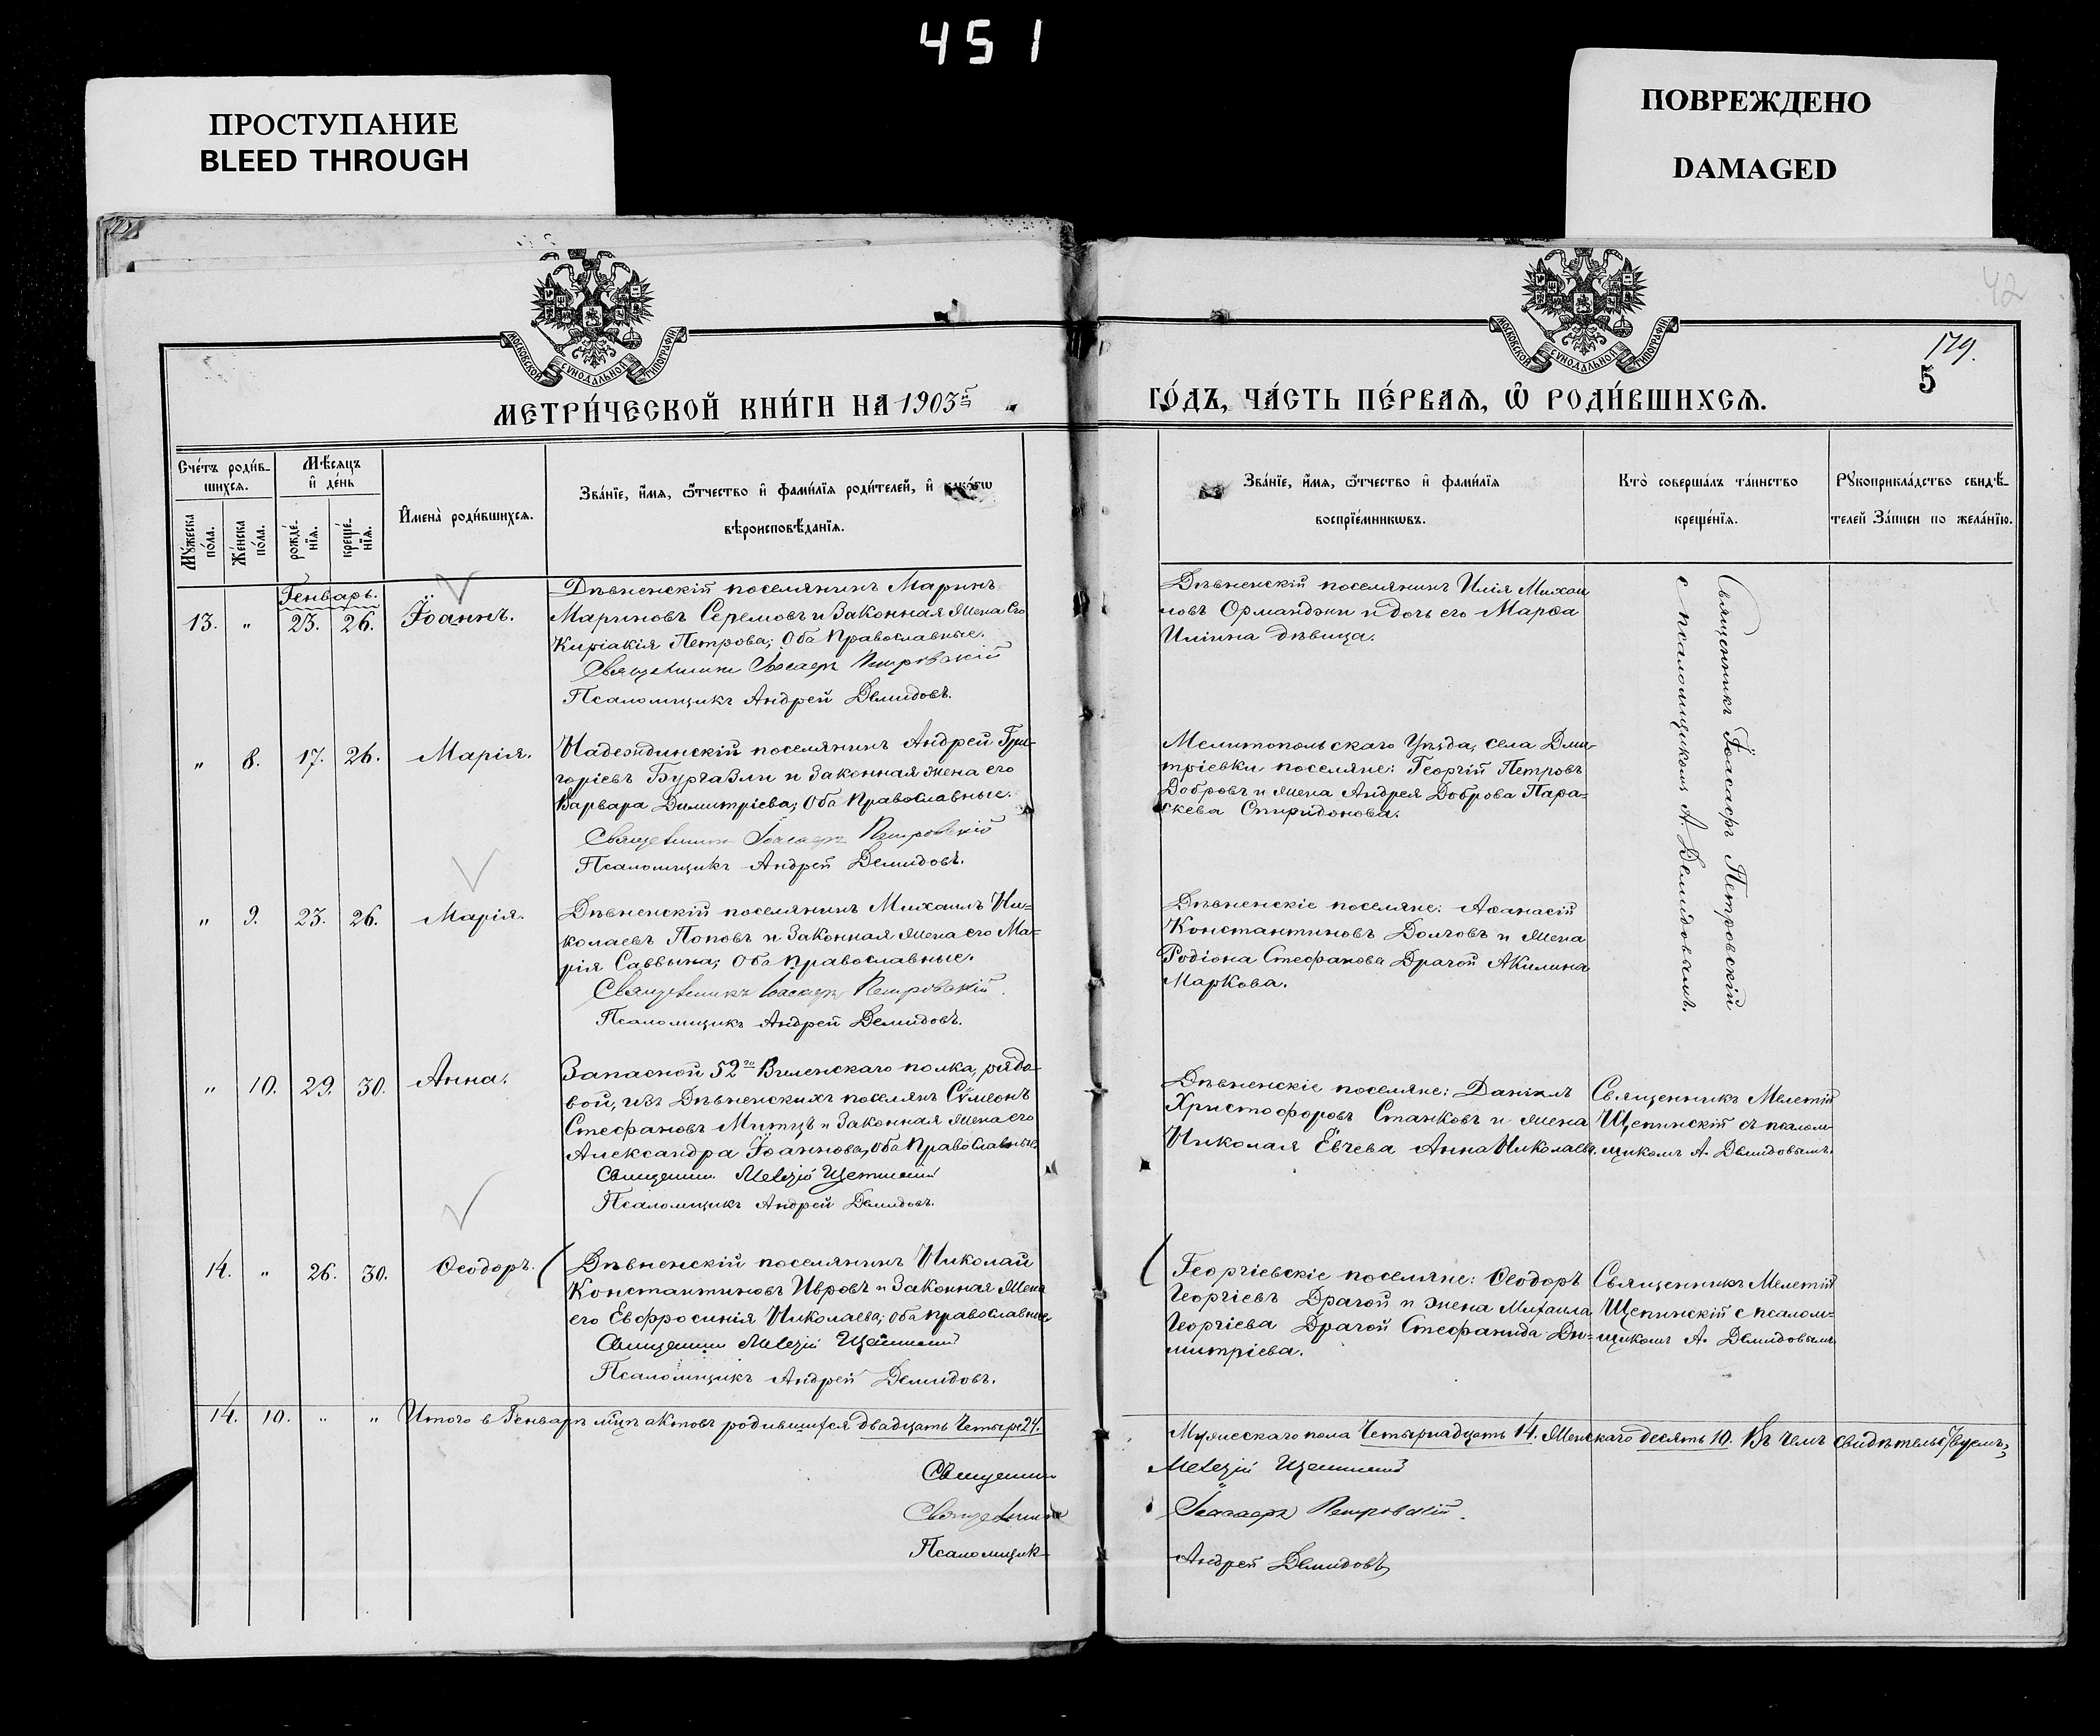 451
ПРОСТУПАНИЕ
BLEED THROUGH
ПОВРЕЖДЕНО
DAMAGED
42
МОСКОВСКОЙ СѴНОДАЛЬНОЙ ТИПОГРАФІИ
МОСКОВСКОЙ СѴНОДАЛЬНОЙ ТИПОГРАФІИ
179.
5
МЕТРИ́ЧЕСКОЙ КНИ́ГИ НА 1903й
ГО́ДЪ, ЧА́СТЬ ПЕ́РВАѦ, Ѡ҆ РОДИ́ВШИХСѦ.
Сче́тъ роди́в-
шихсѧ.
Мѣ́сѧцъ
и҆ де́нь
Мꙋ́жеска по́ла.
Же́нска по́ла.
рожде́-
нїѧ.
креще́-
нїѧ.
И҆мена̀ роди́вшихсѧ.
Зва́нїе, и҆́мѧ, ѻ҆́тчество и҆ фами́лїѧ роди́телей, и҆ како́гѡ
вѣроисповѣ́данїѧ.
Зва́нїе, и҆́мѧ, ѻ҆́тчество и҆ фами́лїѧ
воспрїе́мникѡвъ.
Кто̀ соверша́лъ та́инство
креще́нїѧ.
Рꙋкоприкла́дство свидѣ́-
телей За́писи по жела́нїю.
Генварь.
13. „ 23. 26. Іоаннъ.
Дѣвненскій поселянинъ Маринъ
Мариновъ Серемовъ и Законная жена его
Киріакія Петрова; Оба Православные.
Священникъ Іоасафъ Петровскій
Псаломщикъ Андрей Демидовъ.
Дѣвненскій поселянинъ Илія Михаи
ловъ Орманджи и дочь его Марѳа
Иліина дѣвица.
Священникъ Іоасафъ Петровскій
с псаломщикомъ А. Демидовымъ.
„ 8. 17. 26. Марія.
Надеждинскій поселянинъ Андрей Гри-
горіевъ Бургазли и Законная жена его
Варвара Димитріева; Оба Православные.
Священникъ Іоасафъ Петровскій
Псаломщикъ Андрей Демидовъ.
Мелитопольскаго Уѣзда, села Дми-
тріевки поселяне: Георгій Петровъ
Добровъ и жена Андрея Доброва Пара-
скева Спиридонова.
„ 9. 23. 26. Марія.
Дѣвненскій поселянинъ Михаилъ Ни-
колаевъ Поповъ и Законная жена его Ма-
рія Саввина; Оба Православные.
Священникъ Іоасафъ Петровскій.
Псаломщикъ Андрей Демидовъ.
Дѣвненскіе поселяне: Аѳанасій
Константиновъ Долговъ и жена
Родіона Стефанова Драгой Акилина
Маркова.
„ 10. 29. 30. Анна.
Запасной 52го Виленскаго полка, рядо-
вой, изъ Дѣвненскихъ поселянъ Сѵмеонъ
Стефановъ Митцъ и Законная жена его
Александра Іоаннова, оба Православные
Священникъ Мелетій Щепинскій
Псаломщикъ Андрей Демидовъ.
Дѣвненскіе поселяне: Даніилъ
Христофоровъ Станковъ и жена
Николая Евчева Анна Николаева.
Священникъ Мелетій
Щепинскій съ псалом-
щикомъ А. Демидовымъ.
14. „ 26. 30. Ѳеодоръ.
Дѣвненскій поселянинъ Николай
Константиновъ Ивровъ и Законная жена
его Евфросинія Николаева; оба православные
Священникъ Мелетій Щепинскій
Псаломщикъ Андрей Демидовъ.
Георгіевскіе поселяне: Ѳеодоръ
Георгіевъ Драгой и жена Михаила
Георгіева Драгой Стефанида Ди-
митріева.
Священникъ Мелетій
Щепинскій с псалом-
щикомъ А. Демидовымъ
14. 10. „ „ Итого в Генварѣ мцѣ актовъ родившихся двадцать четыре 24.
Мужескаго пола Четырнадцать 14. Женскаго десять 10. Въ чемъ свидѣтельствуемъ:
Священникъ Мелетій Щепинскій
Священникъ Іоасафъ Петровскій.
Псаломщик Андрей Демидовъ